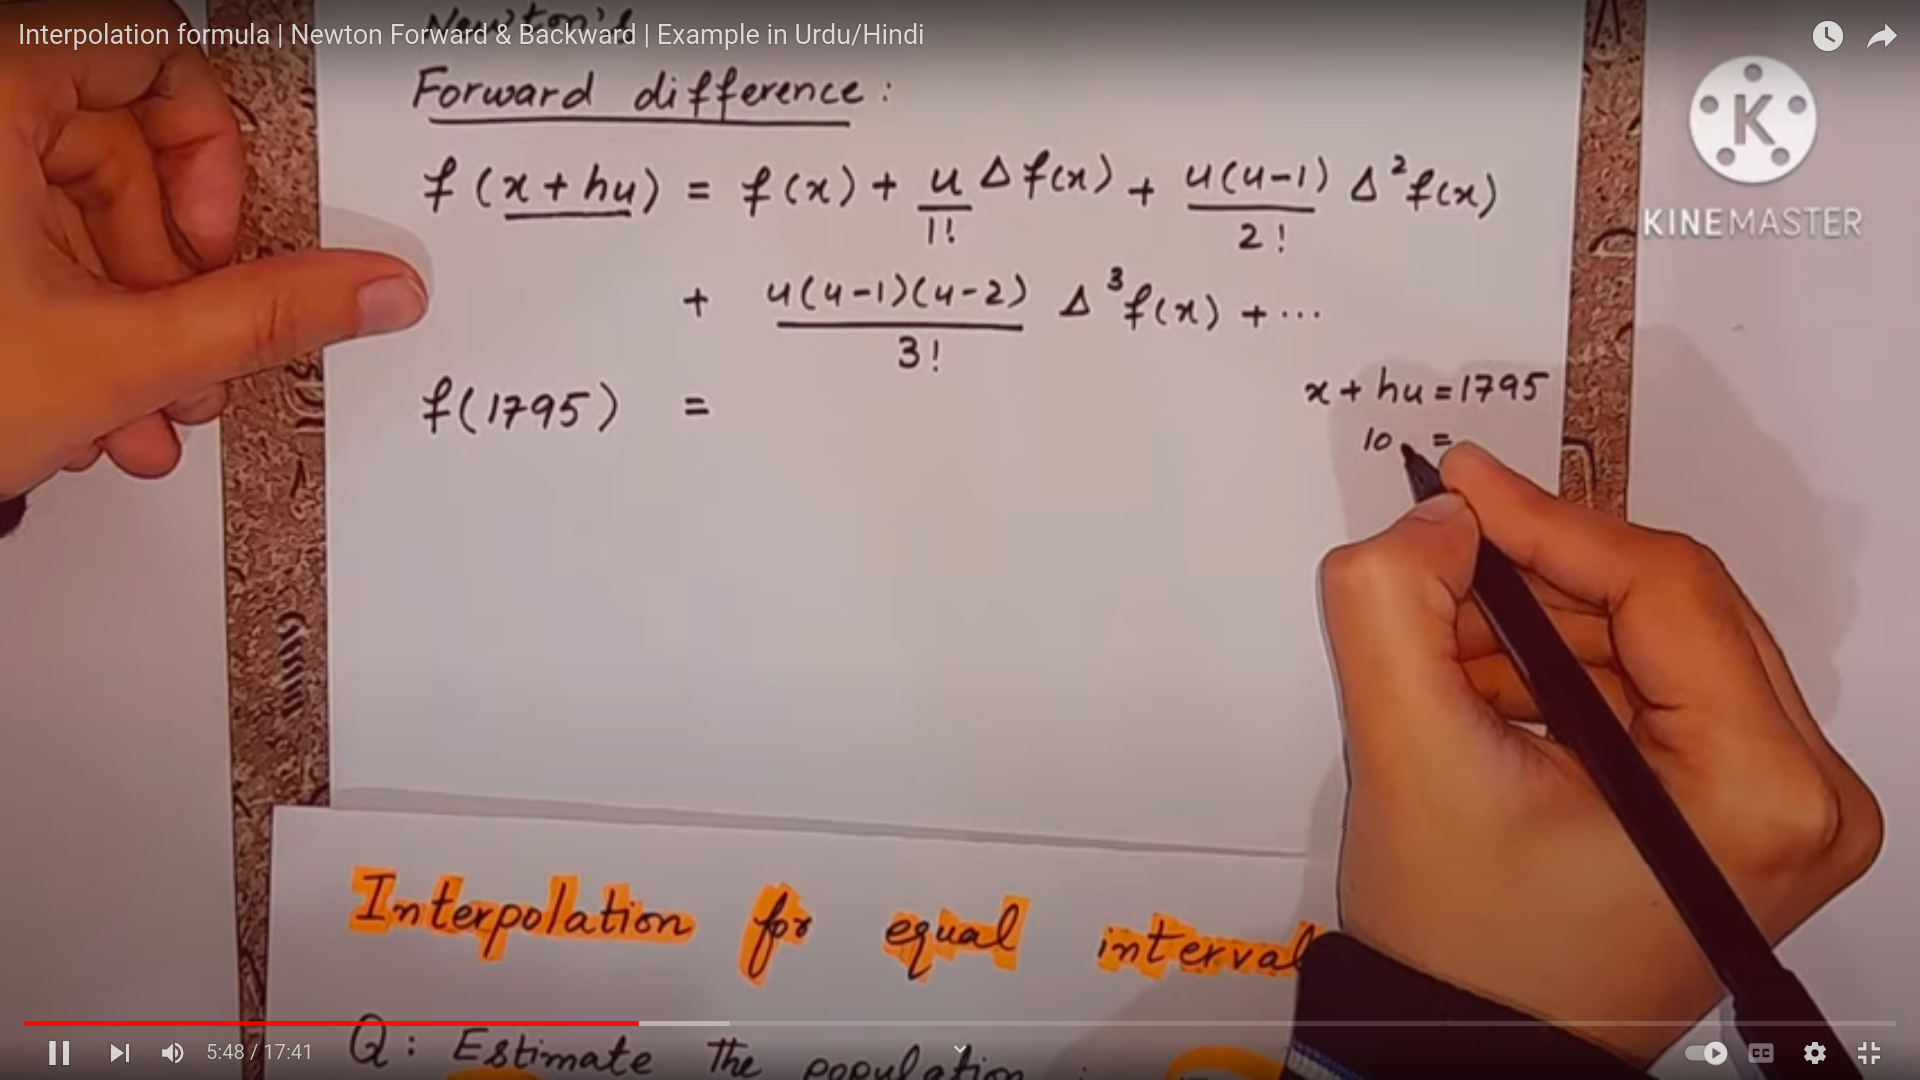 Interpolation formula | Newton Forward & Backward | Example in Urdu/Hindi
Newton's
Forward difference:
f (x + hu) = f(x) + u/1! Δf(x) + u(u-1)/2! Δ²f(x)
+ u(u-1)(u-2)/3! Δ³f(x) + ...
f(1795) =
x + hu = 1795
10 =
K
KINEMASTER
Interpolation for equal interval
Q: Estimate The population
5:48 / 17:41
CC